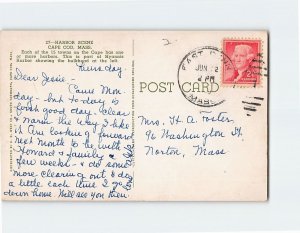 17—HARBOR SCENE
CAPE COD, MASS.
Each of the 15 towns on the Cape has one
or more harbors. This is part of Hyannis
Harbor showing the bulkhead at the left.
Thursday
Dear Josie -
Came Mon
day - but to-day is
first good day. Clear
& warm the way I like
it. Am looking forward
next month to be with
Howard & family a
few weeks - & do some
more clearing out & do
a little each time I go
down home. Will see you then
POST CARD
JUN 2
PM
MASS.
Mrs. H. A. Foster
96 Washington St
Norton, Mass